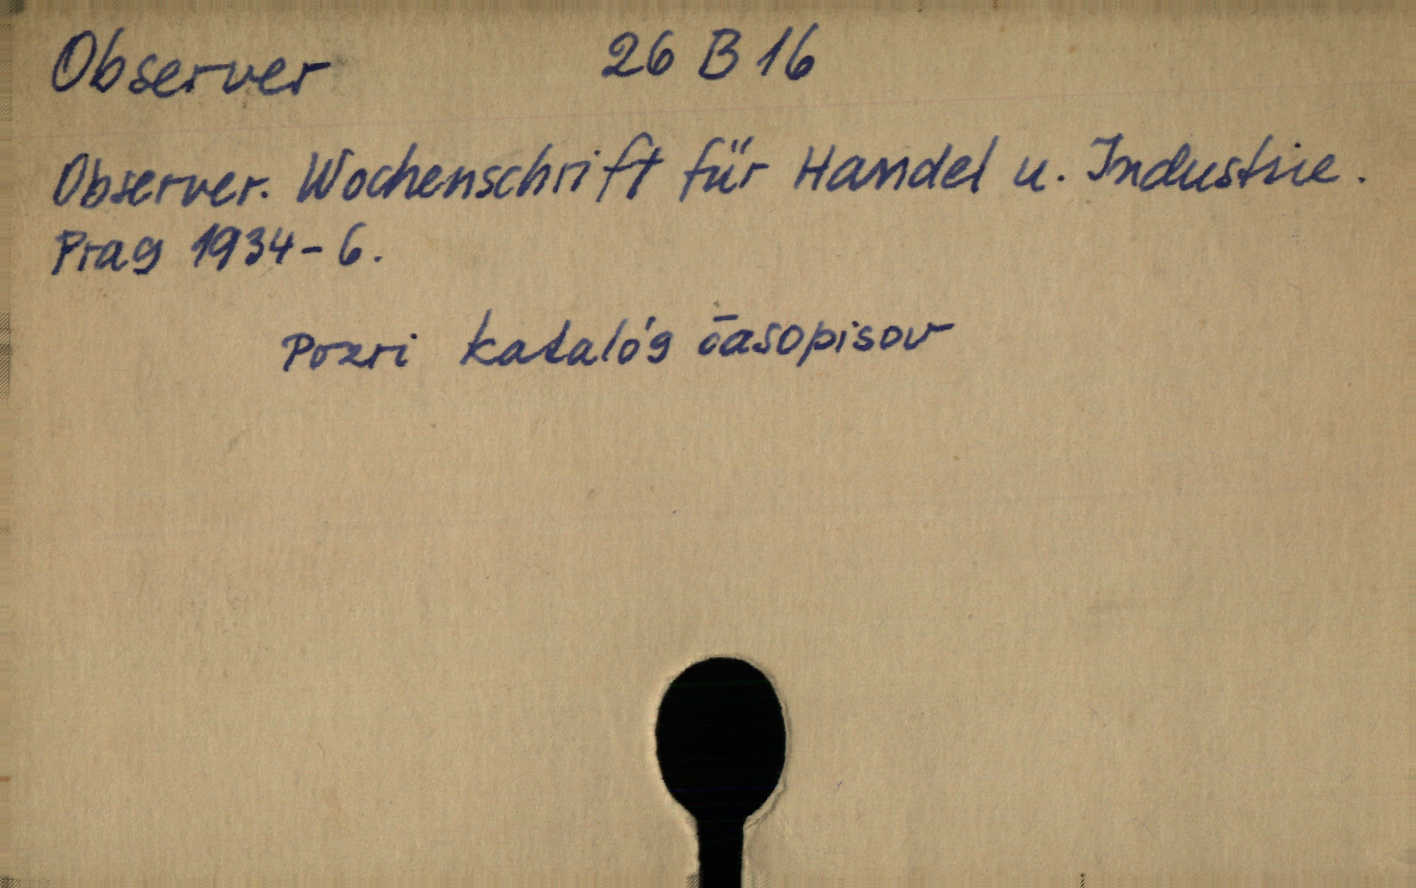 Observer 26 B 16
Observer. Wochenschrift für Handel u. Industrie.
Prag 1934-6.
Pozri katalóg časopisov